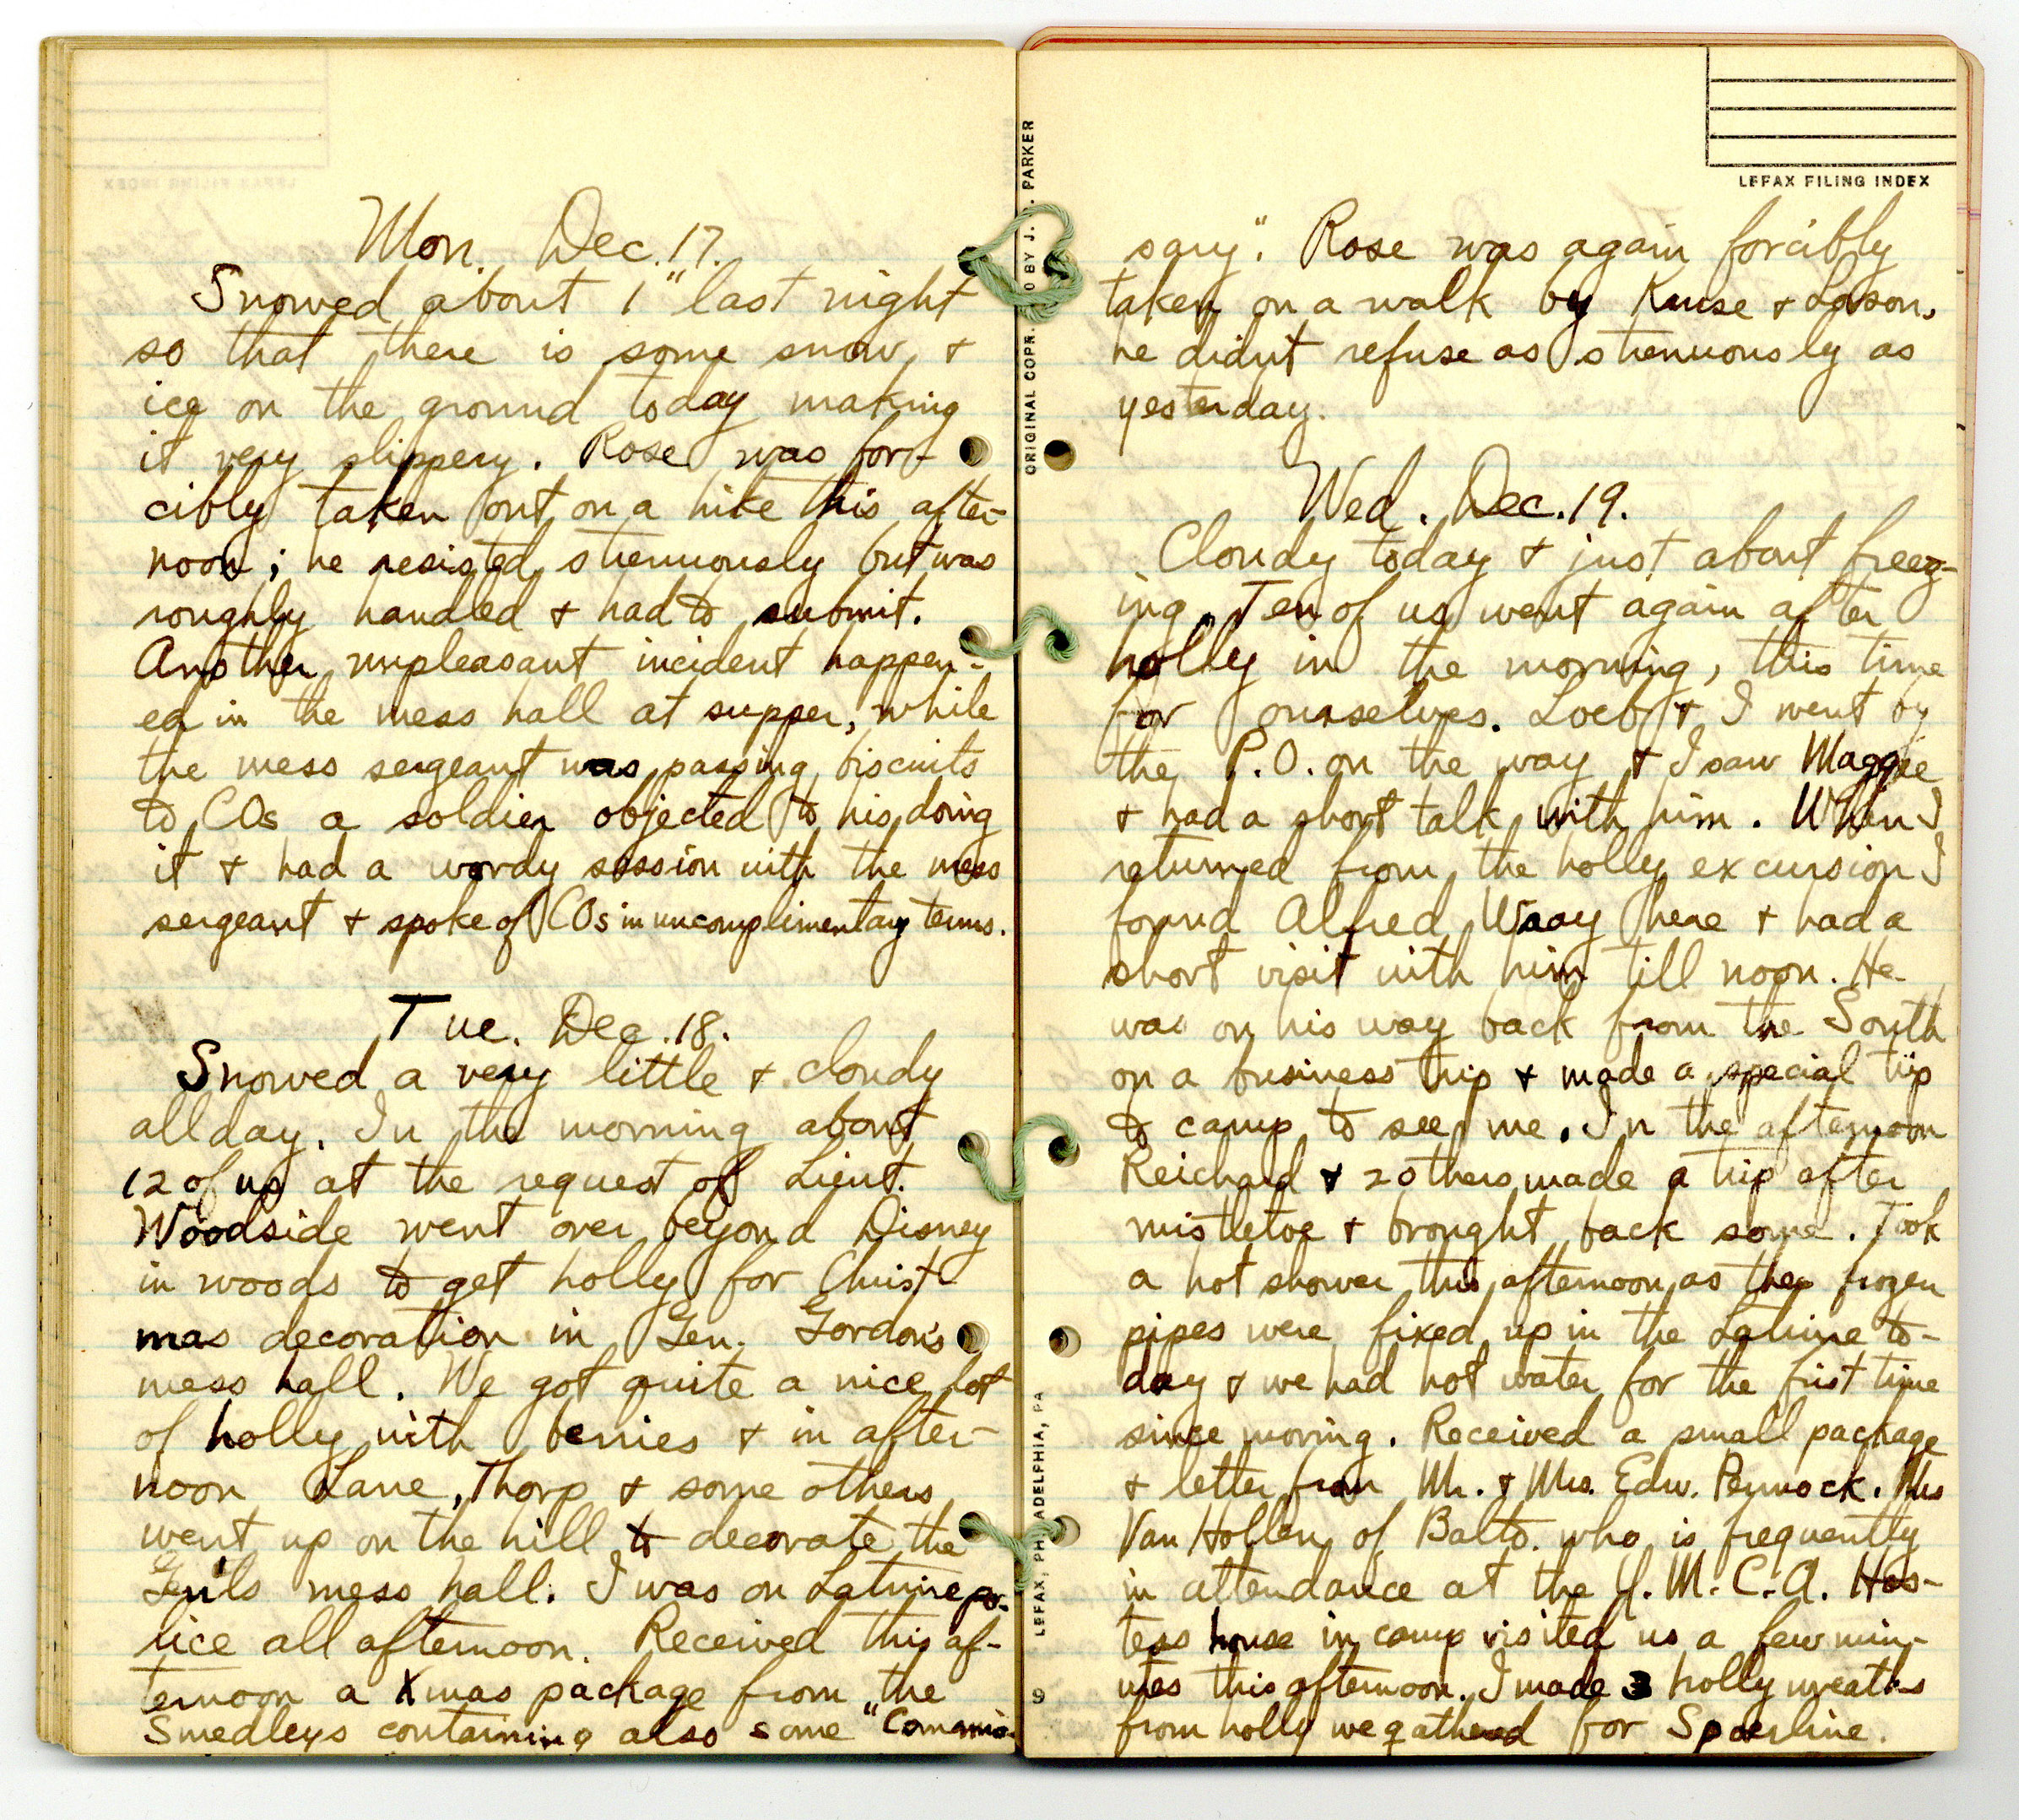 Mon. Dec. 17.
Snowed about 1" last night
so that there is some snow &
ice on the ground today making
it very slippery. Rose was for-
cibly taken out on a hike this after-
noon; he resisted strenuously but was
roughly handled & had to submit.
Another unpleasant incident happen-
ed in the mess hall at supper, while
the mess sergeant was passing biscuits
to COs a soldier objected to his doing
it & had a wordy session with the mess
sergeant & spoke of COs in uncomplimentary terms.
Tue. Dec. 18.
Snowed a very little & cloudy
all day. In the morning about
12 of us at the request of Lieut.
Woodside went over beyond Disney
in woods to get holly for Christ-
mas decoration in Gen. Gordon's
mess hall. We got quite a nice lot
of holly with berries & in after-
noon Lane, Thorp & some others
went up on the hill to decorate the
mess hall. I was on Latrine po-
lice all afternoon. Received this af-
ternoon a Xmas package from the
Smedleys containing also some "Commis-
LEFAX FILING INDEX
ORIGINAL COPR. BY J. PARKER
LEFAX, PHILADELPHIA, PA
9
sary". Rose was again forcibly
taken on a walk by Kruse & Larson,
he didn't refuse as strenuously as
yesterday.
Wed. Dec. 19.
Cloudy today & just about freez-
ing. Ten of us went again after
holly in the morning, this time
for ourselves. Loeb & I went by
the P.O. on the way & I saw Maggie
& had a short talk with him. When I
returned from the holly excursion I
found Alfred Waay here & had a
short visit with him till noon. He
was on his way back from the South
on a business trip & made a special trip
to camp to see me. In the afternoon
Reichard & 2 others made a trip after
mistletoe & brought back some. Took
a hot shower this afternoon as the frozen
pipes were fixed up in the Latrine to-
day & we had hot water for the first time
since moving. Received a small package
& letter from Mr. & Mrs. Edw. Pennock. Mrs
Van Hollen of Balto. who is frequently
in attendance at the Y.M.C.A. Hos-
tess house in camp visited us a few min-
utes this afternoon. I made 3 holly wreaths
from holly we gathered for Spaerline.